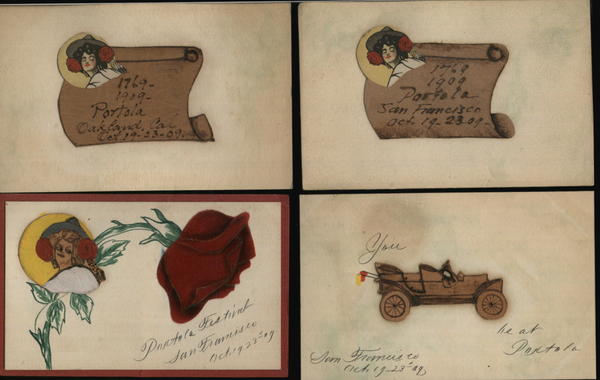 1769-
1909-
Portola
Oakland, Cal
Oct. 19-23-09.
1769
1909
Portola
San Francisco
Oct. 19-23-09.
Portola Festival
San Francisco
Oct, 19-23rd-09
You
be at
Portola
San Francisco
Oct, 19-23rd-09,